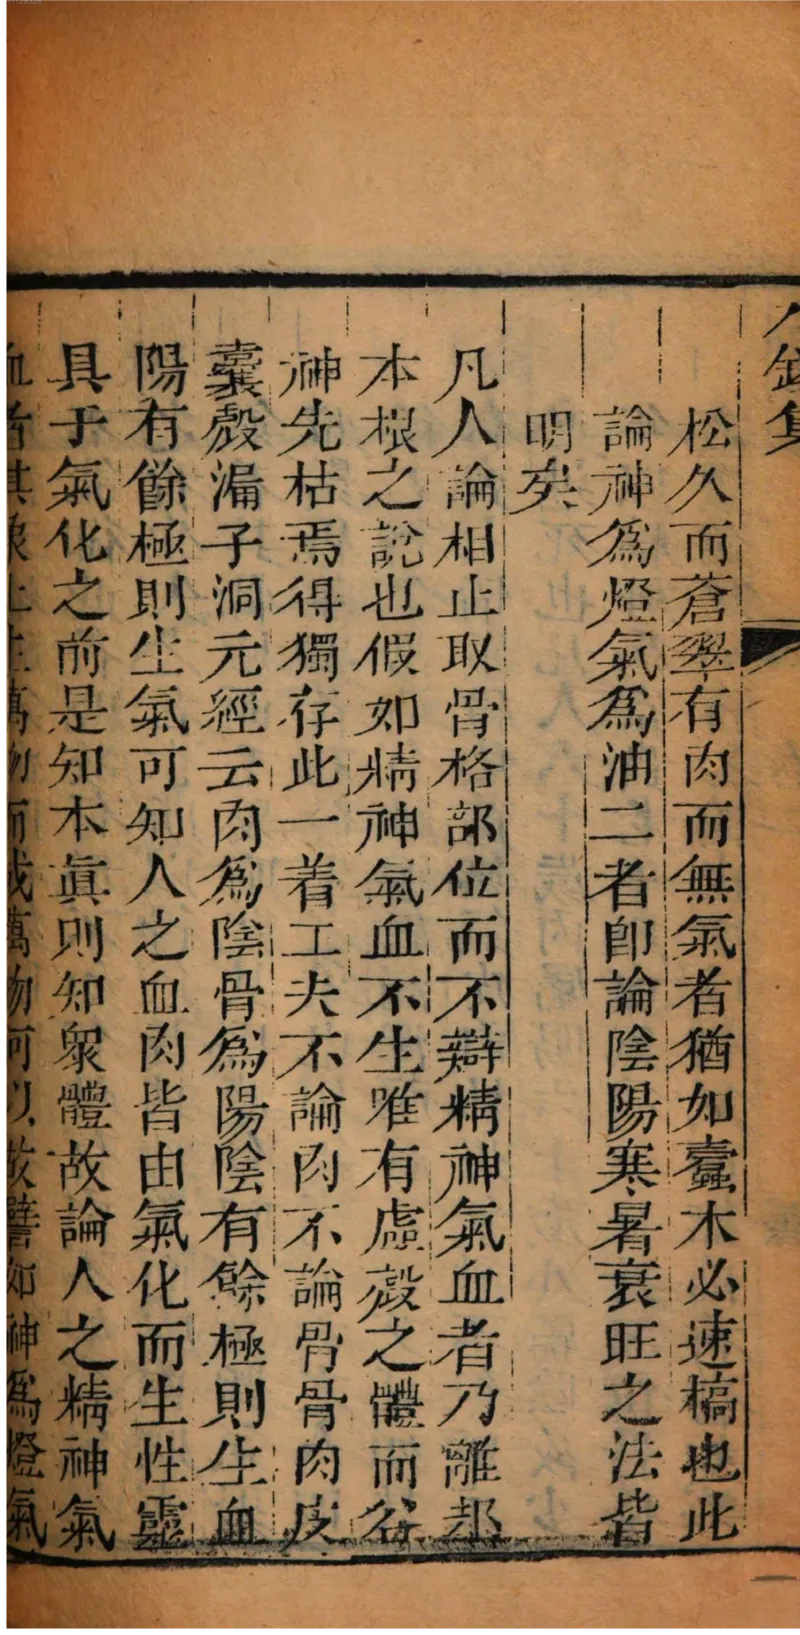 松久而蒼翠有肉而無氣者猶如蠹木必速槁也此
論神爲燈氣爲油二者即論陰陽寒暑衰旺之法皆
明矣
凡人論相止取骨格部位而不辯精神氣血者乃離却
本根之說也假如精神氣血不生唯有虛殼之體而谷
神先枯焉得獨存此一着工夫不論肉不論骨骨肉皮
囊殼漏子洞元經云肉爲陰骨爲陽陰有餘極則生血
陽有餘極則生氣可知人之血肉皆由氣化而生性靈
具于氣化之前是知本眞則知衆體故論人之精神氣
血者其象上生萬物而成萬物何以故譬如神爲燈氣